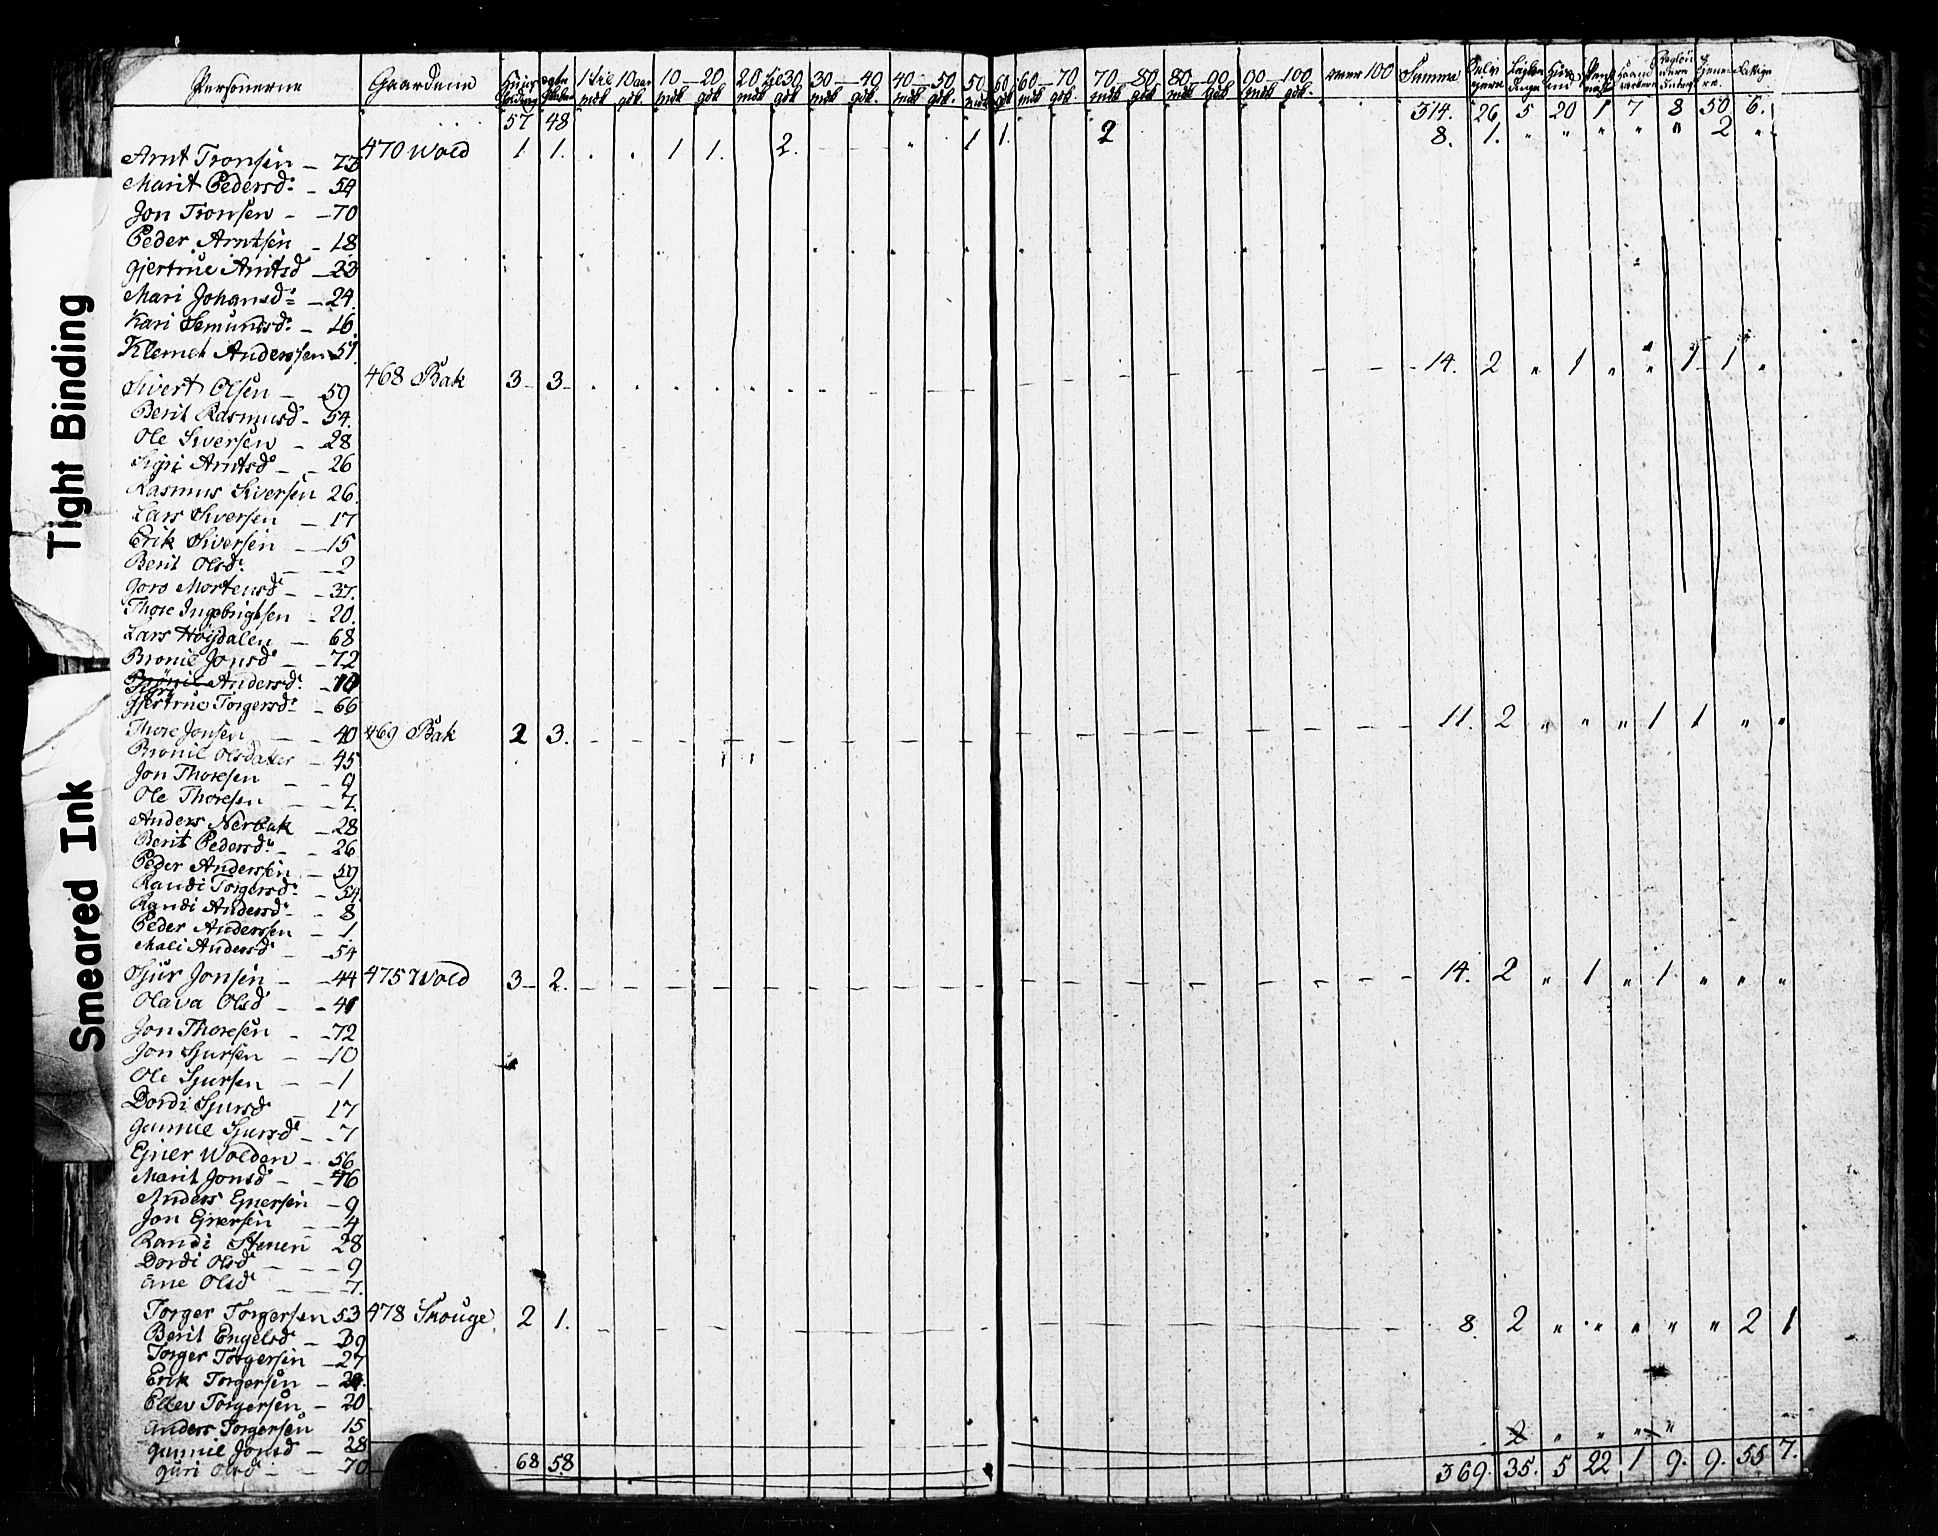 Personerne Gaardene 1 til 10 aar 10—20 20 til 30 30—40 40—50 50 60 60—70 70—80 80—90 90—100 over 100 Summa
mdk gdk. mdk gdk mdk gdk mdk gdk. mdk gdk. mdk gdk mdk gdk. mdk gdk mdk gdk mdk gdk.
57 48 314. 26 5 20 1 7 8 50 6.
Arnt Tronsen — 73 470 Wold 1 1. . . 1 1. 2. 1 1. 2 8. 1. „ „ „ „ „ 2 „
Marit Pedersd. — 54
Jon Tronsen — 70
Peder Arntsen — 18
Gjertrue Arntsd — 23
Mari Johansd. — 24.
Kari Semundsd. — 16.
Klemet Anderssen 51.
Sivert Olsen — 59 468 Bak 3 3 14. 2 „ 1 „ „ 1 1 „
Berit Rasmusd — 54.
Ole Siversen — 28
Sigri Arntsd — 26
Rasmus Siversen 26.
Lars Siversen — 17
Erik Siversen — 15
Berit Olsd. — 2
Goro Mortensd — 37.
Thore Ingebrigtsen — 20.
Lars Høijdalen — 68
Bronil Jonsd — 72
Brønil Andersd. — 70
Guri
Gjertrue Torgersd — 66
Thore Jonsen — 40 469 Bak 2 3. 11. 2 „ „ „ 1 1 „ „
Bronil Olsdatter — 45
Jon Thoresen — 9
Ole Thoresen — 7.
Anders Nerbak — 28
Berit Pedersd. — 26
Peder Anderssen — 59
Randi Torgersd. — 54
Randi Andersd — 8
Peder Anderssen — 1
Mali Andersd — 54
Sjur Jonsen — 44 475 Wold 3 2. 14. 2 „ 1 „ 1 „ „ „
Olava Olsd — 41
Jon Thoresen — 72
Jon Sjursen — 10
Ole Sjursen — 1
Dordi Sjursd 17
Gunnil Sjursd — 7
Ejner Wolden — 56
Marit Jonsd — 46
Anders Ejnersen — 9
Jon Ejnersen — 4
Randi Stenen 28
Dordi Olsd — 9
Ane Olsd — 7.
Torger Torgersen 53 478 Skouge 2 1. 8. 2 „ „ „ „ „ 2 1
Berit Engelsd — 39
Torger Torgersen — 27
Erik Torgersen — 24.
Ellev Torgersen — 20
Anders Torgersen 15
Gunnil Jonsd — 28 2 „ „ „ „
Guri Olsd — 70 68 58 369. 35. 5 22 1 9. 9. 55 7.
Tight Binding
Smeared Ink